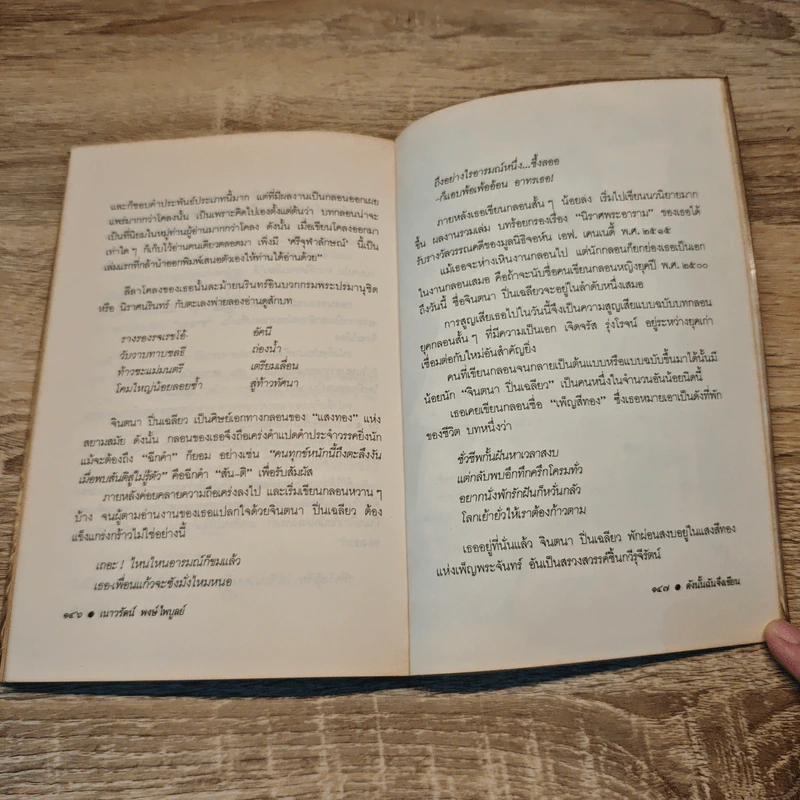 และก็ชอบคำประพันธ์ประเภทนี้มาก แต่ที่มีผลงานเป็นกลอนออกเผย
แพร่มากกว่าโคลงนั้น เป็นเพราะคิดไปเองตั้งแต่ต้นว่า บทกลอนน่าจะ
เป็นที่นิยมในหมู่ท่านผู้อ่านมากกว่าโคลง ดังนั้น เมื่อเขียนโคลงออกมา
เท่าใด ๆ ก็เก็บไว้อ่านคนเดียวตลอดมา เพิ่งมี 'ศรีจุฬาลักษณ์' นี้เป็น
เล่มแรกที่กล้านำออกพิมพ์เสนอตัวเองให้ท่านได้อ่านด้วย"
ลีลาโคลงของเธอนั้นละม้ายนรินทร์อินบวกกรมพระปรมานุชิต
หรือ นิราศนรินทร์ กับตะเลงพ่ายลองอ่านดูสักบท
รางรองรจเรขโอ้ อัคนี
วับวาบทาบชลธี ถ่องน้ำ
ท้าวชะแม่มนตรี เตรียมเลื่อน
โคมใหญ่น้อยลอยซ้ำ สู่ท้าวทัศนา
จินตนา ปิ่นเฉลียว เป็นศิษย์เอกทางกลอนของ "แสงทอง" แห่ง
สยามสมัย ดังนั้น กลอนของเธอจึงถือเคร่งคำแปดคำประจำวรรคยิ่งนัก
แม้จะต้องถึง "ฉีกคำ" ก็ยอม อย่างเช่น "คนทุกข์หนักนี้ถึงตะลึงงัน
เมื่อพบสันติสู่ไม่รู้ตัว" คือฉีกคำ "สัน-ติ" เพื่อรับสัมผัส
ภายหลังค่อยคลายความถือเคร่งลงไป และเริ่มเขียนกลอนหวาน ๆ
บ้าง จนผู้ตามอ่านงานของเธอแปลกใจด้วยจินตนา ปิ่นเฉลียว ต้อง
แข็งแกร่งกร้าวไม่ใช่อย่างนี้
เถอะ ! ไหนไหนอารมณ์ก็ขมแล้ว
เธอ-เพื่อนแก้วจะชังมั่งไหมหนอ
๑๔๖ ● เนาวรัตน์ พงษ์ไพบูลย์
ถึงอย่างไรอารมณ์หนึ่ง...ซึ้งลออ
-ก็แอบพ้อเพ้ออ้อน อาทรเธอ!
ภายหลังเธอเขียนกลอนสั้น ๆ น้อยลง เริ่มไปเขียนนวนิยายมาก
ขึ้น ผลงานรวมเล่ม บทร้อยกรองเรื่อง "นิราศพระอาราม" ของเธอได้
รับรางวัลวรรณคดีของมูลนิธิจอห์น เอฟ. เคนเนดี้ พ.ศ. ๒๕๑๕
แม้เธอจะห่างเหินงานกลอนไป แต่นักกลอนก็ยกย่องเธอเป็นเอก
ในงานกลอนเสมอ คือถ้าจะนับชื่อคนเขียนกลอนหญิงยุคปี พ.ศ. ๒๕๐๐
ถึงวันนี้ ชื่อจินตนา ปิ่นเฉลียวจะอยู่ในลำดับหนึ่งเสมอ
การสูญเสียเธอไปในวันนี้จึงเป็นความสูญเสียแบบฉบับบทกลอน
ยุคกลอนสั้น ๆ ที่มีความเป็นเอก เจิดจรัส รุ่งโรจน์ อยู่ระหว่างยุคเก่า
เชื่อมต่อกับใหม่อันสำคัญยิ่ง
คนที่เขียนกลอนจนกลายเป็นต้นแบบหรือแบบฉบับขึ้นมาได้นั้นมี
น้อยนัก "จินตนา ปิ่นเฉลียว" เป็นคนหนึ่งในจำนวนอันน้อยนิดนี้
เธอเคยเขียนกลอนชื่อ "เพ็ญสีทอง" ซึ่งเธอหมายเอาเป็นดังที่พัก
ของชีวิต บทหนึ่งว่า
ชั่วชีพกั้นฝันหาเวลาสงบ
แต่กลับพบอึกทึกครึกโครมทั่ว
อยากนั่งพักรักฝันก็หวั่นกลัว
โลกเย้ายั่วให้เราต้องก้าวตาม
เธออยู่ที่นั่นแล้ว จินตนา ปิ่นเฉลียว พักผ่อนสงบอยู่ในแสงสีทอง
แห่งเพ็ญพระจันทร์ อันเป็นสรวงสวรรค์ชั้นกวีรุจีรัตน์
๑๔๗ ● ดังนั้นฉันจึงเขียน